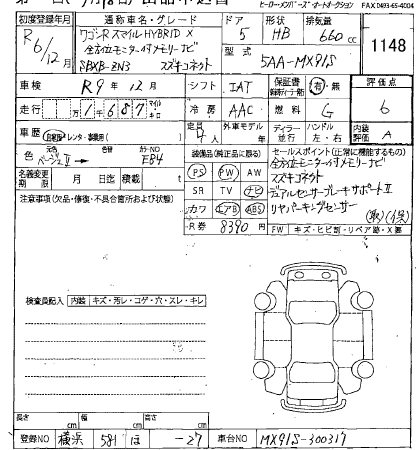 ヒーローメンバーズ・オートオークション FAX 0493-65-4004
初度登録年月 通称車名・グレード ドア 形状 排気量
R6/12月 ワゴンRスマイル HYBRID X 5 HB 660cc 1148
全方位モニター付メモリーナビ 型式 5AA-MX91S
5BXB-ZN3 スズキコネクト
車検 R9年12月 シフト IAT 保証書 有・無 評価点
走行 万1千687 マイル キロ 冷房 AAC 燃料 G 6
車歴 自家用・レンタ・事業用( ) 定員 4人 外車モデル 年 ディラー 並行 ハンドル 左・右 内装評価 A
色 ベージュⅡ → 色替 カラーNO FB4
装備品(純正品に限る) セールスポイント(正常に機能するもの)
PS PW AW 全方位モニター付メモリーナビ
名義変更期限 月 日迄 積載 t スズキコネクト
SR TV ナビ デュアルセンサーブレーキサポートⅡ
注意事項(欠品・修復・不具合箇所および状態)
カワ エアB ABS リヤパーキングセンサー
(取)(保)
R券 8390円 FW キズ・ヒビ割・リペア跡・X要
検査員記入 内装 キズ・汚レ・コゲ・穴・スレ・キレ
長さ cm 幅 cm 高さ cm
登録NO 横浜 581 ほ -27 車台NO MX91S-300317